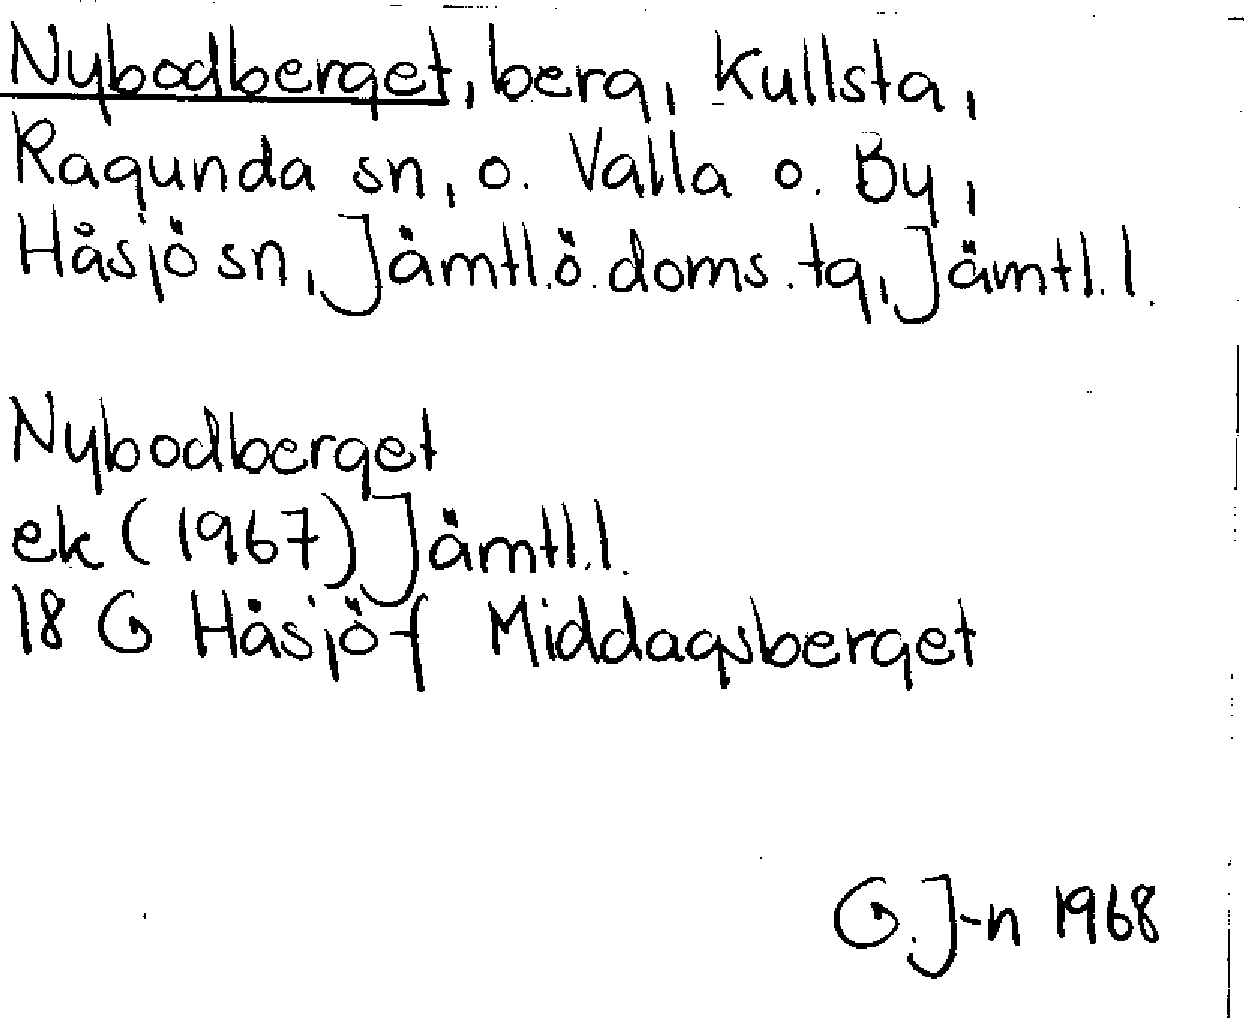 Nybodberget, berg, Kullsta,
Ragunda sn, o. Valla o. By,
Håsjö sn, Jämtl.ö.doms.tg, Jämtl.l.
Nybodberget
ek (1967) Jämtl.l.
18 G Håsjö f Middagsberget
G.J-n 1968